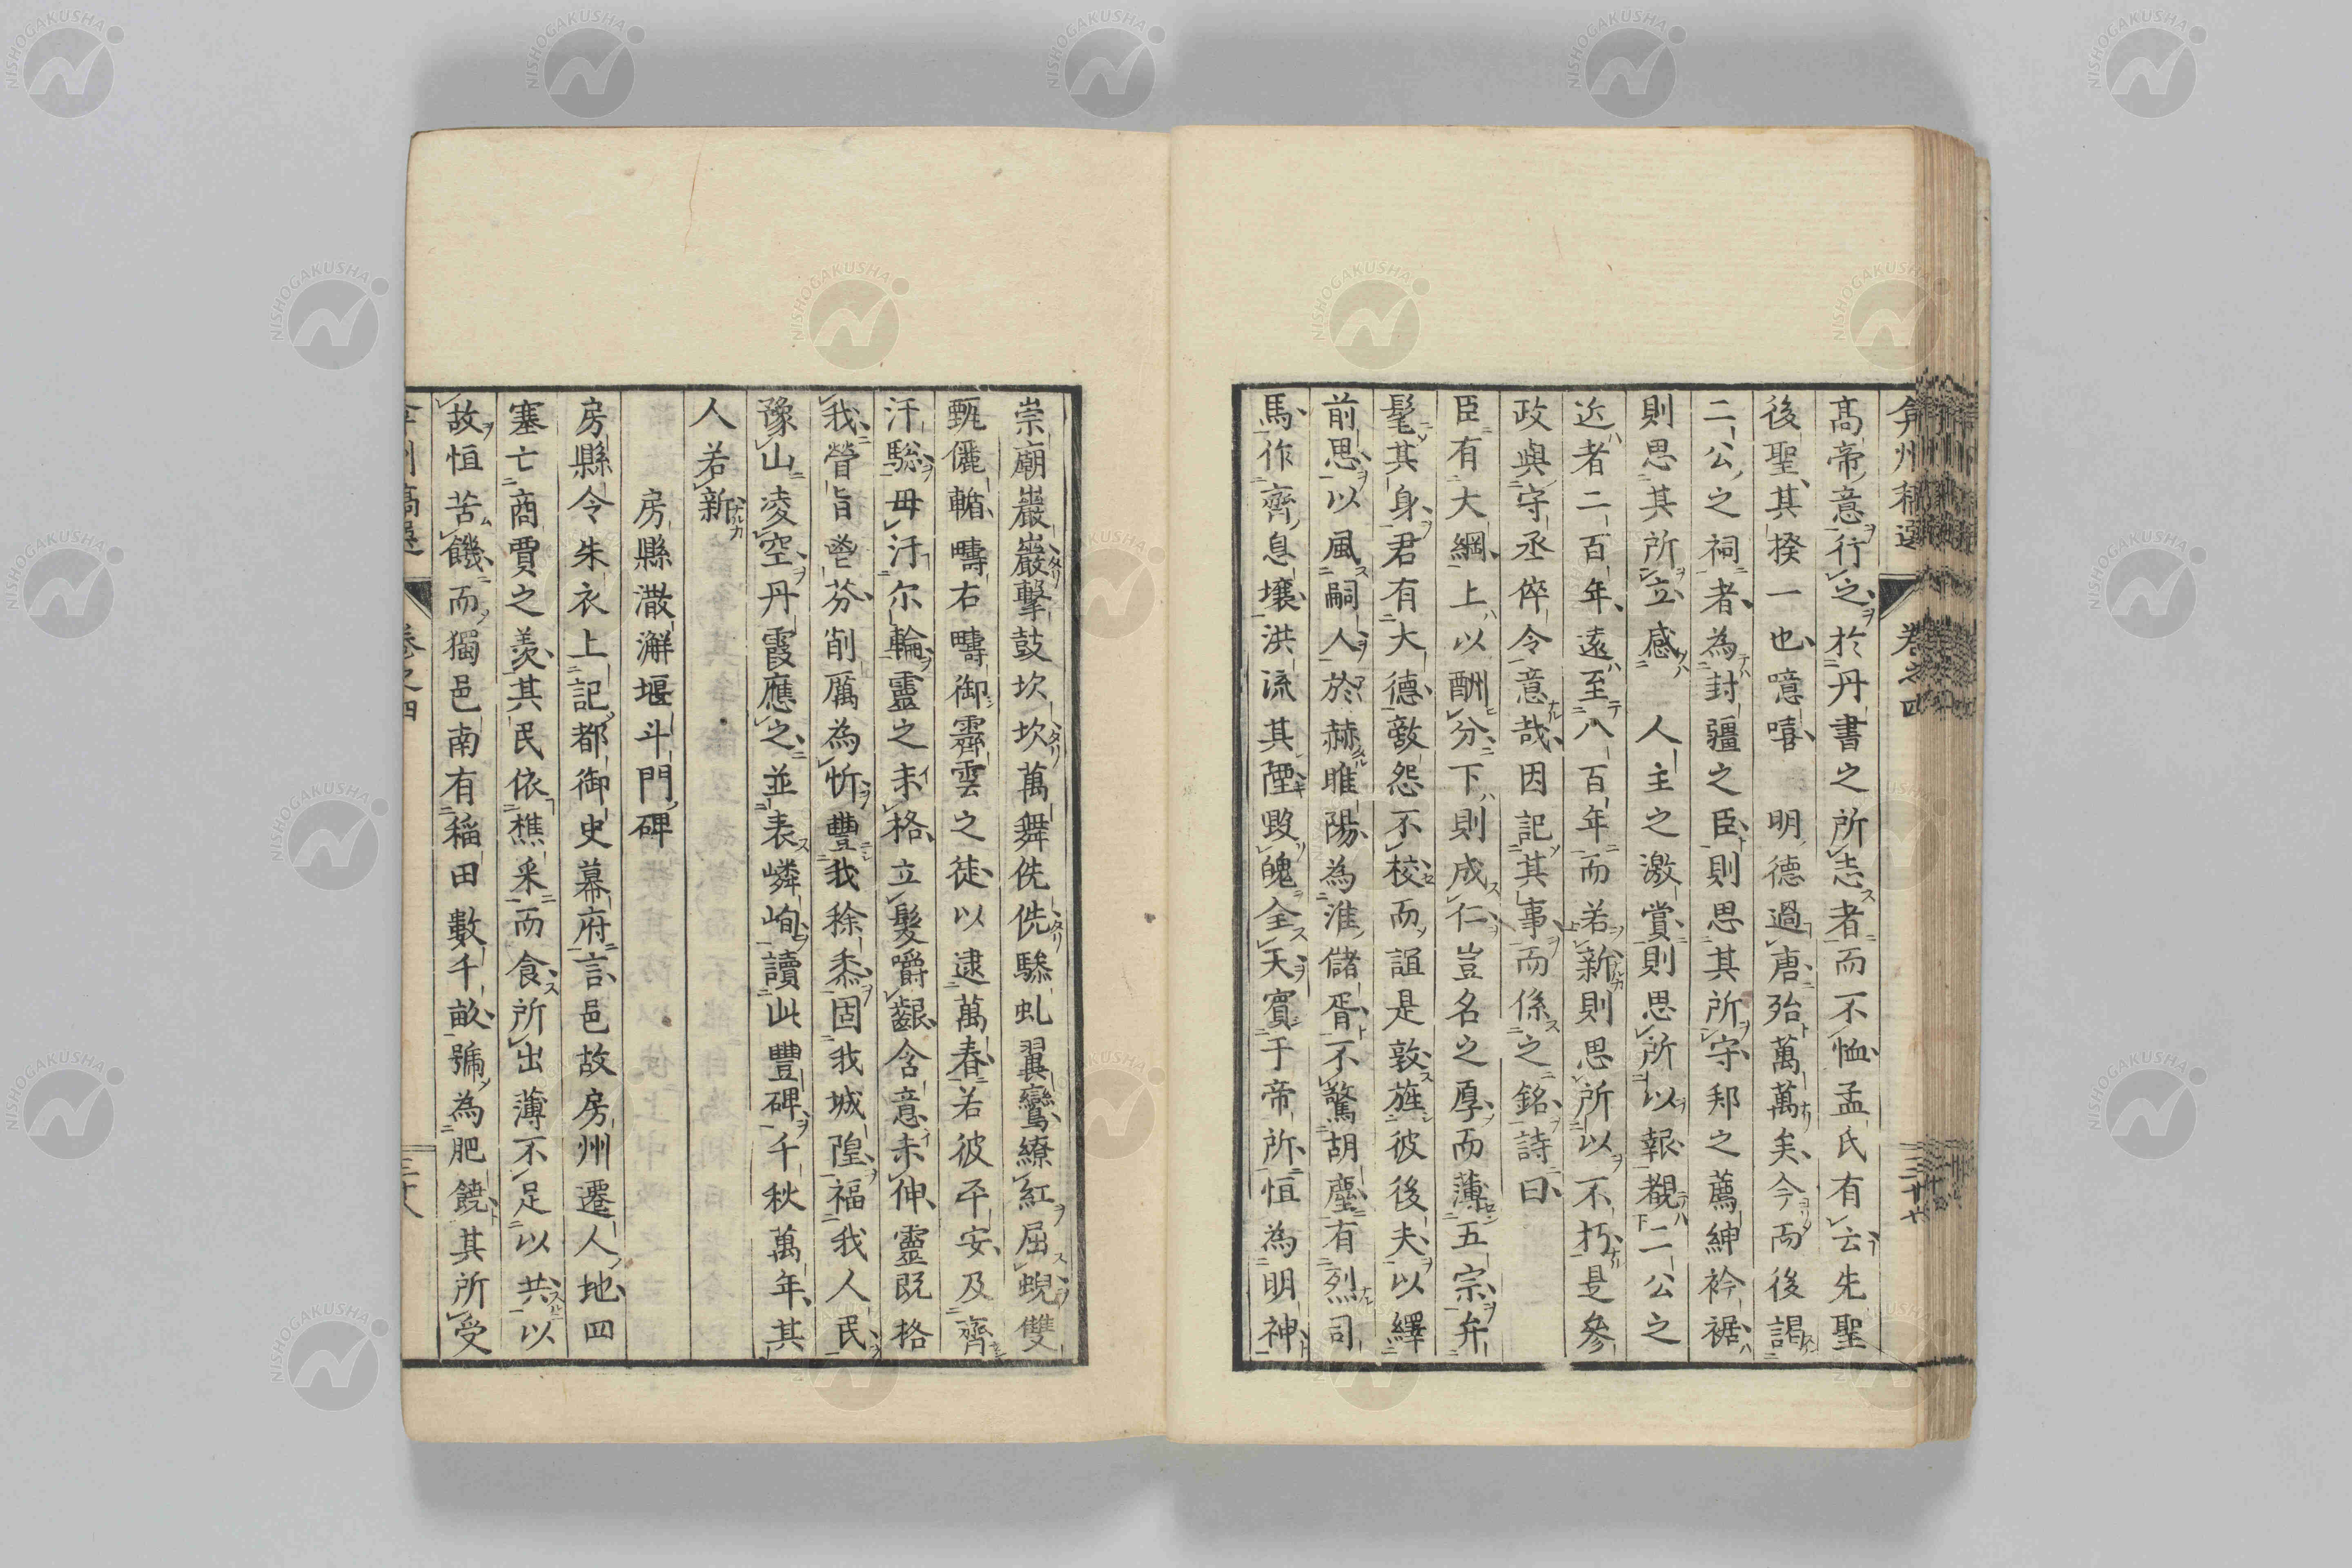 弇州稿選 卷之四 三十七
高帝意行之於丹書之所志者而不恤孟氏有云先聖
後聖其揆一也噫嘻 明德過唐殆萬萬矣今而後謁
二公之祠者為封疆之臣則思其所守邦之薦紳衿裾
則思其所立感 人主之激賞則思所以報覩二公之
近者二百年遠至八百年而若新則思所以不朽是參
政與守丞倅令意哉因記其事而係之銘詩曰
臣有大綱上以酬分下則成仁豈名之厚而薄五宗弁
髦其身君有大德敵怨不校而詛是敦旌彼後夫以繹
前思以風嗣人於赫睢陽為淮儲胥不驚胡塵有烈司
馬作齊息壤洪流其陻毀魄全天賓于帝所恒為明神
崇廟巖巖擊鼓坎坎萬舞侁侁驂虬翼鸞繚紅屈蜺雙
甄儷輴疇右疇御霽雲之徒以逮萬春若彼平安及齊
汗騐毋汙尔輪靈之未格立髮嚼齦含意未伸靈既格
我膋旨鬯芬削厲為忻豐我稌黍固我城隍福我人民
豫山凌空丹霞應之並表嶙峋讀此豐碑千秋萬年其
人若新
房縣潵澥堰斗門碑
房縣令朱衣上記都御史幕府言邑故房州遷人地四
塞亡商賈之羨其民依樵采而食所出薄不足以共以
故恒苦饑而獨邑南有稲田數千畝號為肥饒其所受
弇州稿選 卷之四 三十八